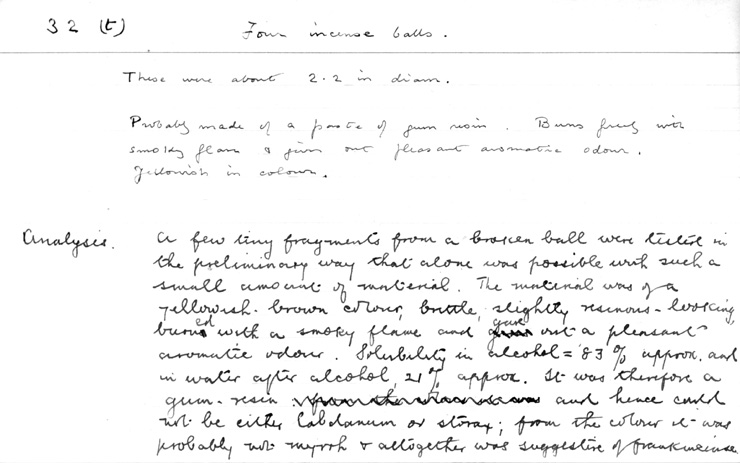 32 (t) Four incense balls.
These were about 2.2 in diam.
Probably made of a paste of gum resin. Burns freely with
smoky flame & gives out pleasant aromatic odour.
Yellowish in colour.
Analysis. A few tiny fragments from a broken ball were tested in
the preliminary way that alone was possible with such a
small amount of material. The material was of a
yellowish-brown colour, brittle, slightly resinous-looking,
burned with a smoky flame and gave out a pleasant
aromatic odour. Solubility in alcohol = 83% approx. and
in water after alcohol, 21% approx. It was therefore a
gum-resin and hence could
not be either labdanum or storax; from the colour it was
probably not myrrh & altogether was suggestive of frankincense